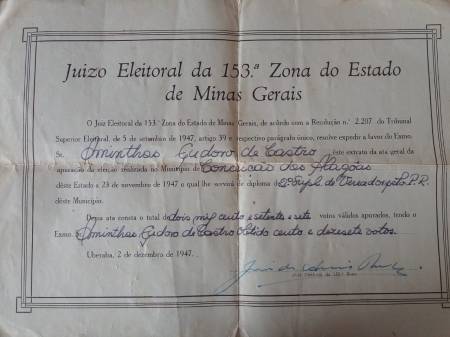 Juizo Eleitoral da 153.ª Zona do Estado
de Minas Gerais
O Juiz Eleitoral da 153.ª Zona do Estado de Minas Gerais, de acordo com a Resolução n.º 2.207 do Tribunal
Superior Eleitoral, de 5 de setembro de 1947, artigo 39 e respectivo parágrafo único, resolve expedir a favor do Exmo.
Sr. Omirthas Gudono de Castro, êste extrato da ata geral da
apuração da eleição realizada no Municipio de Conceicao das Alagôas
dêste Estado a 23 de novembro de 1947 a qual lhe servirá de diploma de 2º Supl. de Vereador pelo P.R.
dêste Municipio.
Dessa ata consta o total de dois mil cento e setenta e sete votos válidos apurados, tendo o
Exmo. Sr. de Castro obtido cento e dezesete votos.
Uberaba, 2 de dezembro de 1947.